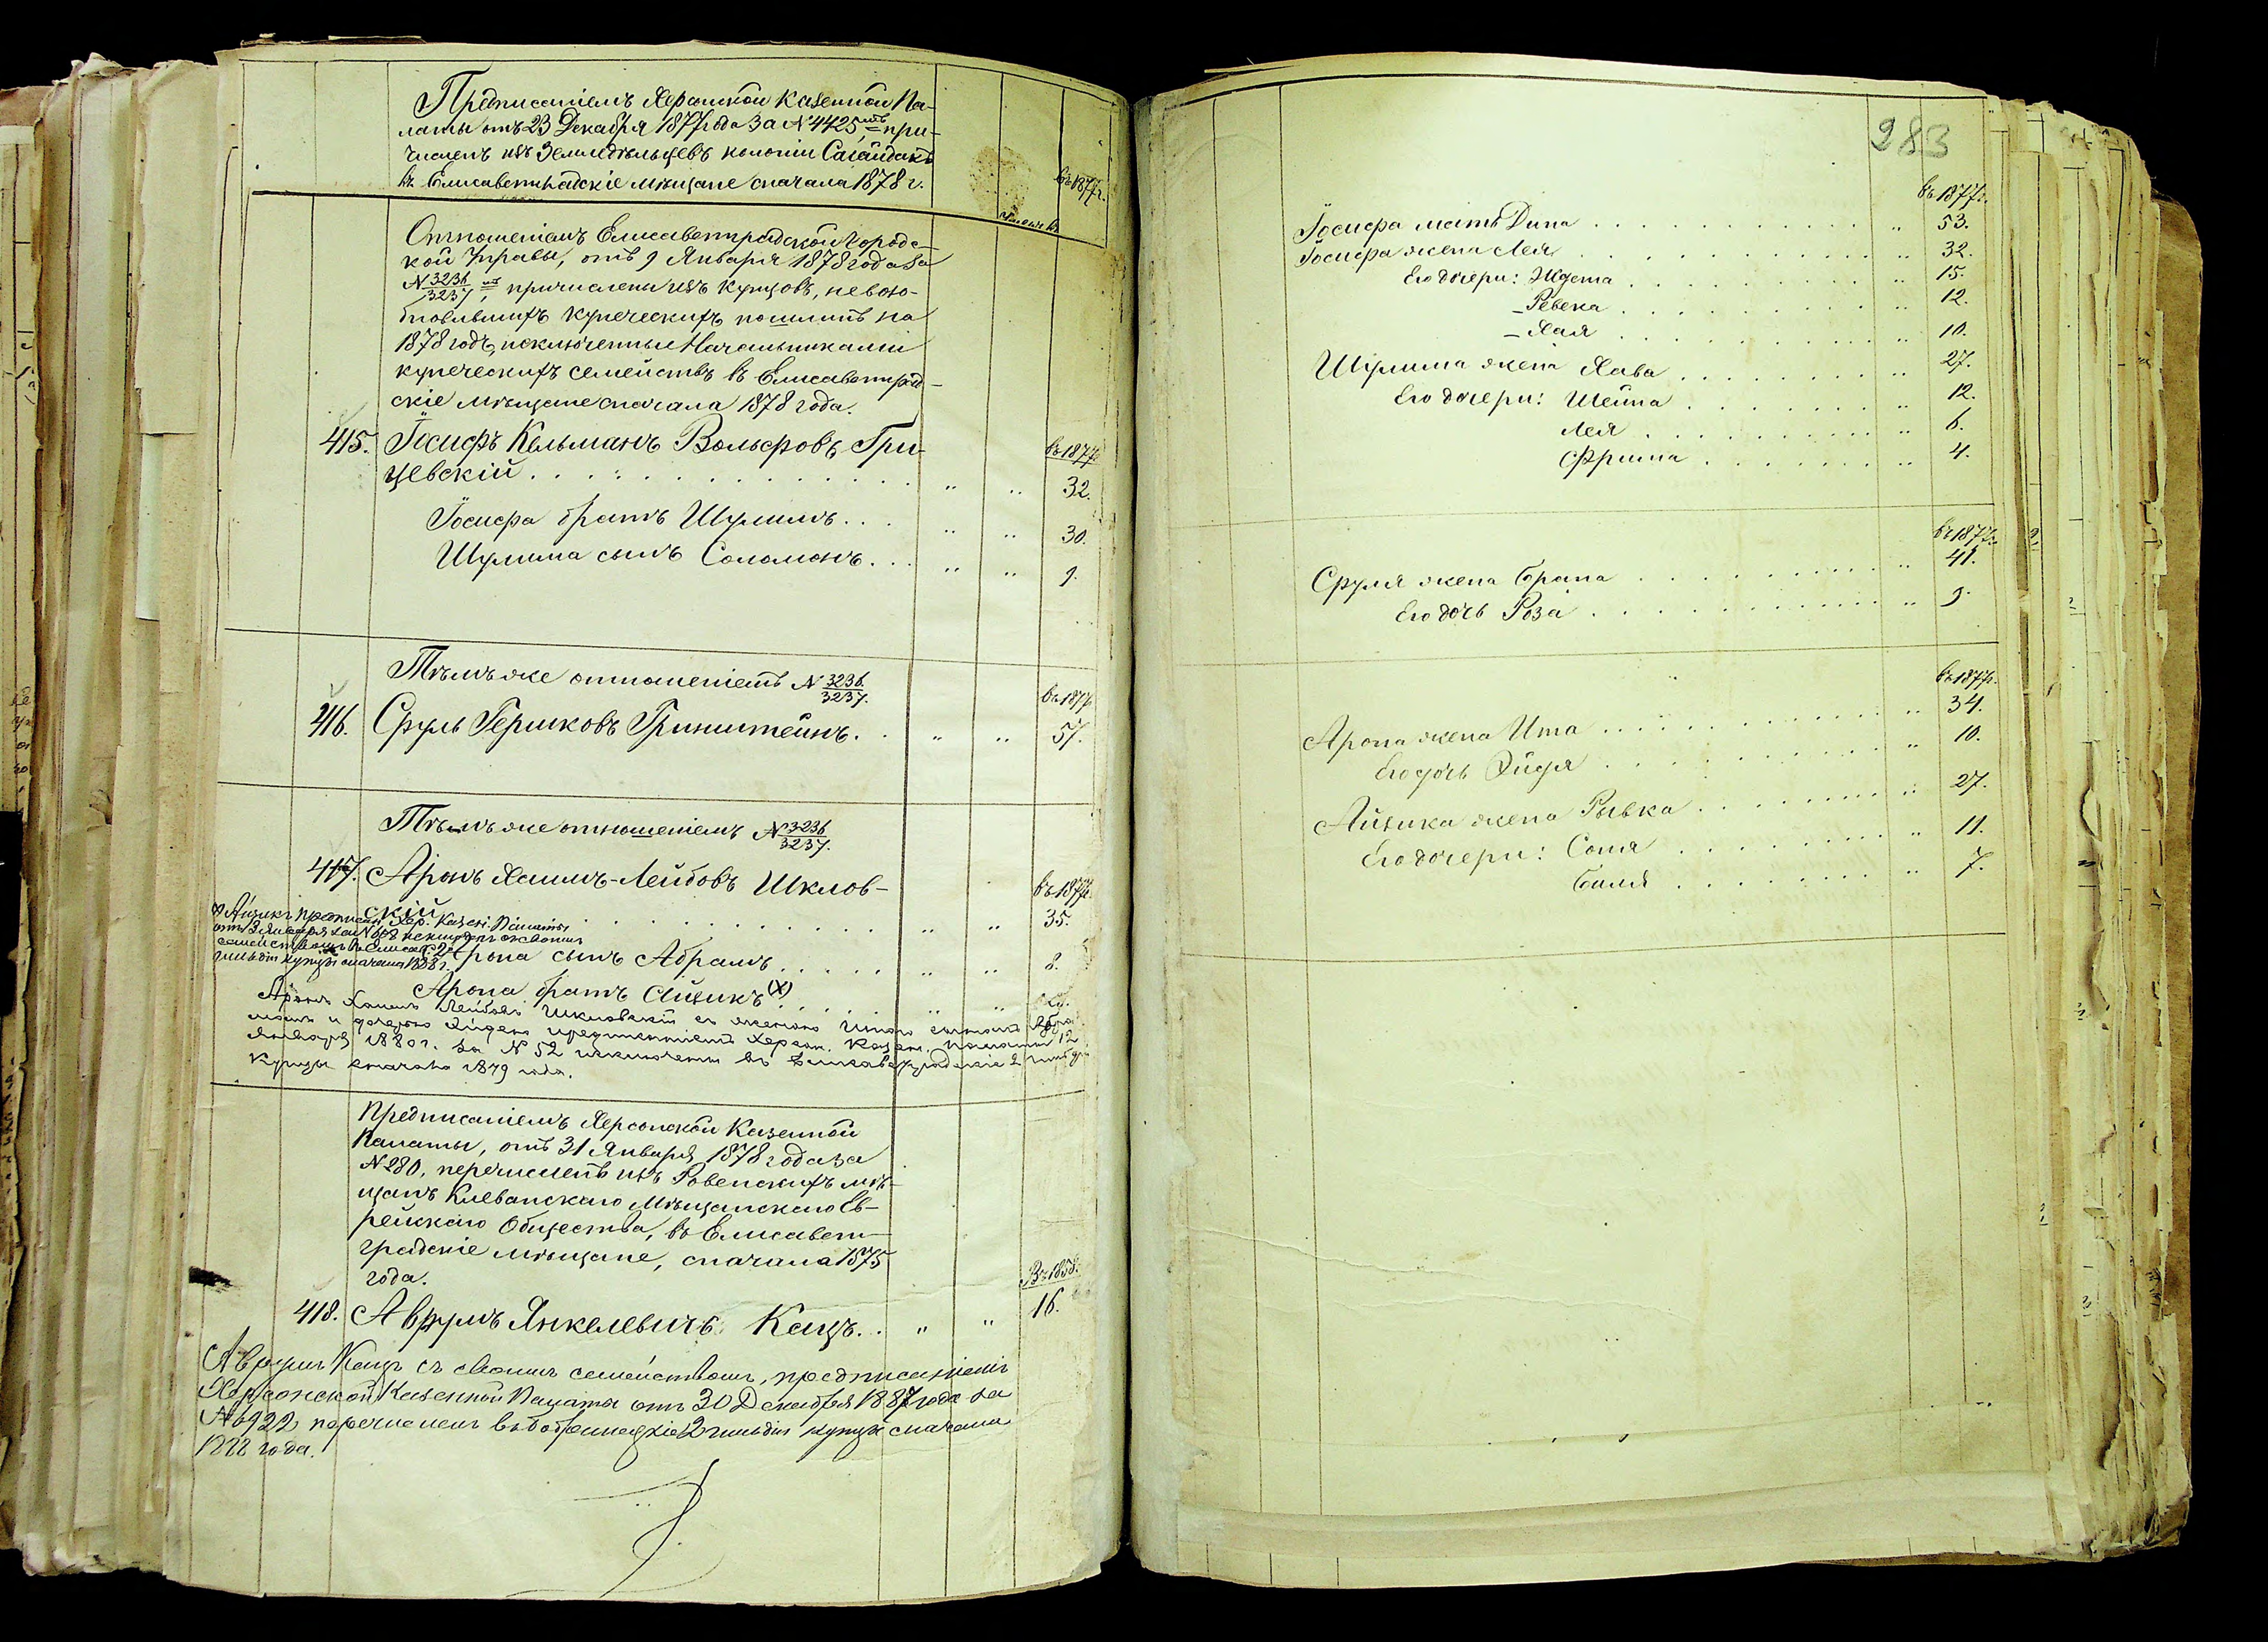 Предписаніемъ Херсонской Казенной Па-
латы отъ 23 Декабря 1877 года за № 4425, при-
численъ изъ Земледѣльцевъ колоніи Сагайдакъ
въ Елисаветградскіе мѣщане сначала 1878 г.
въ 1877 г.
Отношеніемъ Елисаветградской Городс-
кой Управы, отъ 9 Января 1878 года за
№ 3236/3237, причислены изъ купцовъ, невозо-
бновившихъ купеческихъ пошлинъ на
1878 годъ, исключенные Начальниками
купеческихъ семействъ въ Елисаветград-
скіе мѣщане сначала 1878 года.
въ 1877 г.
415. Іосифъ Кельманъ Вольфовъ Гри-
цевскій . . . " " 32.
Іосифа братъ Шулимъ . . . " " 30.
Шулима сынъ Соломонъ . . . " " 9.
Тѣмъ же отношеніемъ № 3236/3237.
въ 1877 г.
416. Сруль Гершковъ Гринштейнъ . . " " 57.
Тѣмъ же отношеніемъ № 3236/3237.
417. Аронъ Хаимъ-Лейбовъ Шклов-
въ 1877 г.
скій . . . " " 35.
Х Айзикъ предписан. Хер. Казен. Палаты
отъ 3 Января за № исключенъ со своимъ
семействомъ въ Елисав. 2й
гильдіи купцы сначала 1888 г.
Арона сынъ Абрамъ . . . " " 8.
Арона братъ Айзикъ (Х) . . . " "
Аронъ Хаимъ Лейбовъ Шкловскій съ женою Итою сыномъ Абра-
момъ и дочерью Эйдею предписаніемъ Херсон. Казен. Палаты 12
Января 1880 г. за № 52 исключены въ Елисаветградскіе 2 гильдіи
купцы сначала 1879 года.
Предписаніемъ Херсонской Казенной
Палаты, отъ 31 Января 1878 года за
№ 280, перечисленъ изъ Ровенскихъ мѣ-
щанъ Клеванскаго Мѣщанскаго Ев-
рейскаго Общества, въ Елисавет-
градскіе мѣщане, сначала 1875
года.
Въ 1858.
418. Аврумъ Янкелевичъ Кацъ . . " " 16.
Аврумъ Кацъ съ своимъ семействомъ, предписаніемъ
Херсонской Казенной Палаты отъ 30 Декабря 1887 года за
№ 6922 перечисленъ въ Бобринецкіе 2 гильдіи купцы сначала
1888 года.
283
въ 1877 г.
Іосифа мать Дина . . . " 53.
Іосифа жена Лея . . . " 32.
Его дочери: Ждета . . . " 15.
– Ревека . . . " 12.
– Хая . . . " 10.
Шулима жена Хава . . . " 27.
Его дочери: Шейна . . . " 12.
Лея . . . " 6.
Фрима . . . " 4.
въ 1877 г.
Сруля жена Брана . . . " 41.
Его дочь Роза . . . " 9.
въ 1877 г.
Арона жена Ита . . . " 34.
Его дочь Эйдя . . . " 10.
Айзика жена Рывка . . . " 27.
Его дочери: Соня . . . " 11.
Биля . . . " 7.